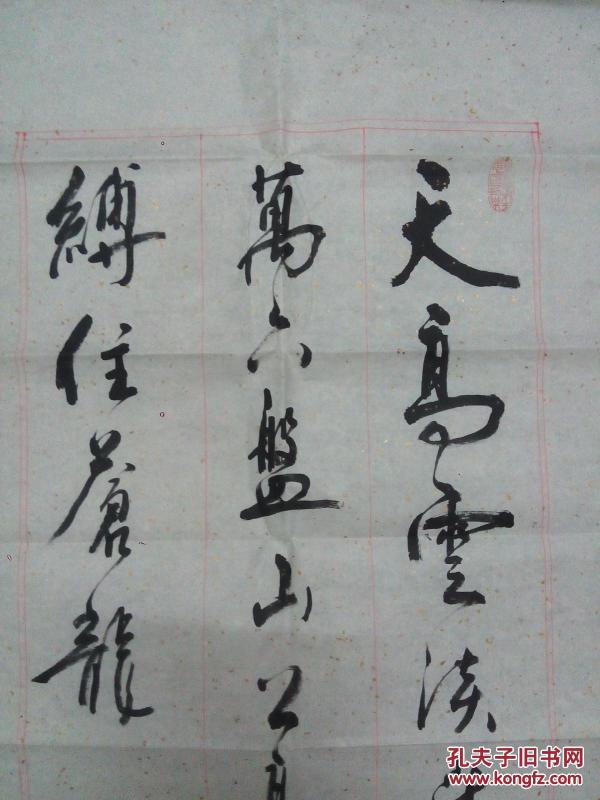 天高雲淡
萬六盤山上高
縛住蒼龍
孔夫子旧书网
www.kongfz.com